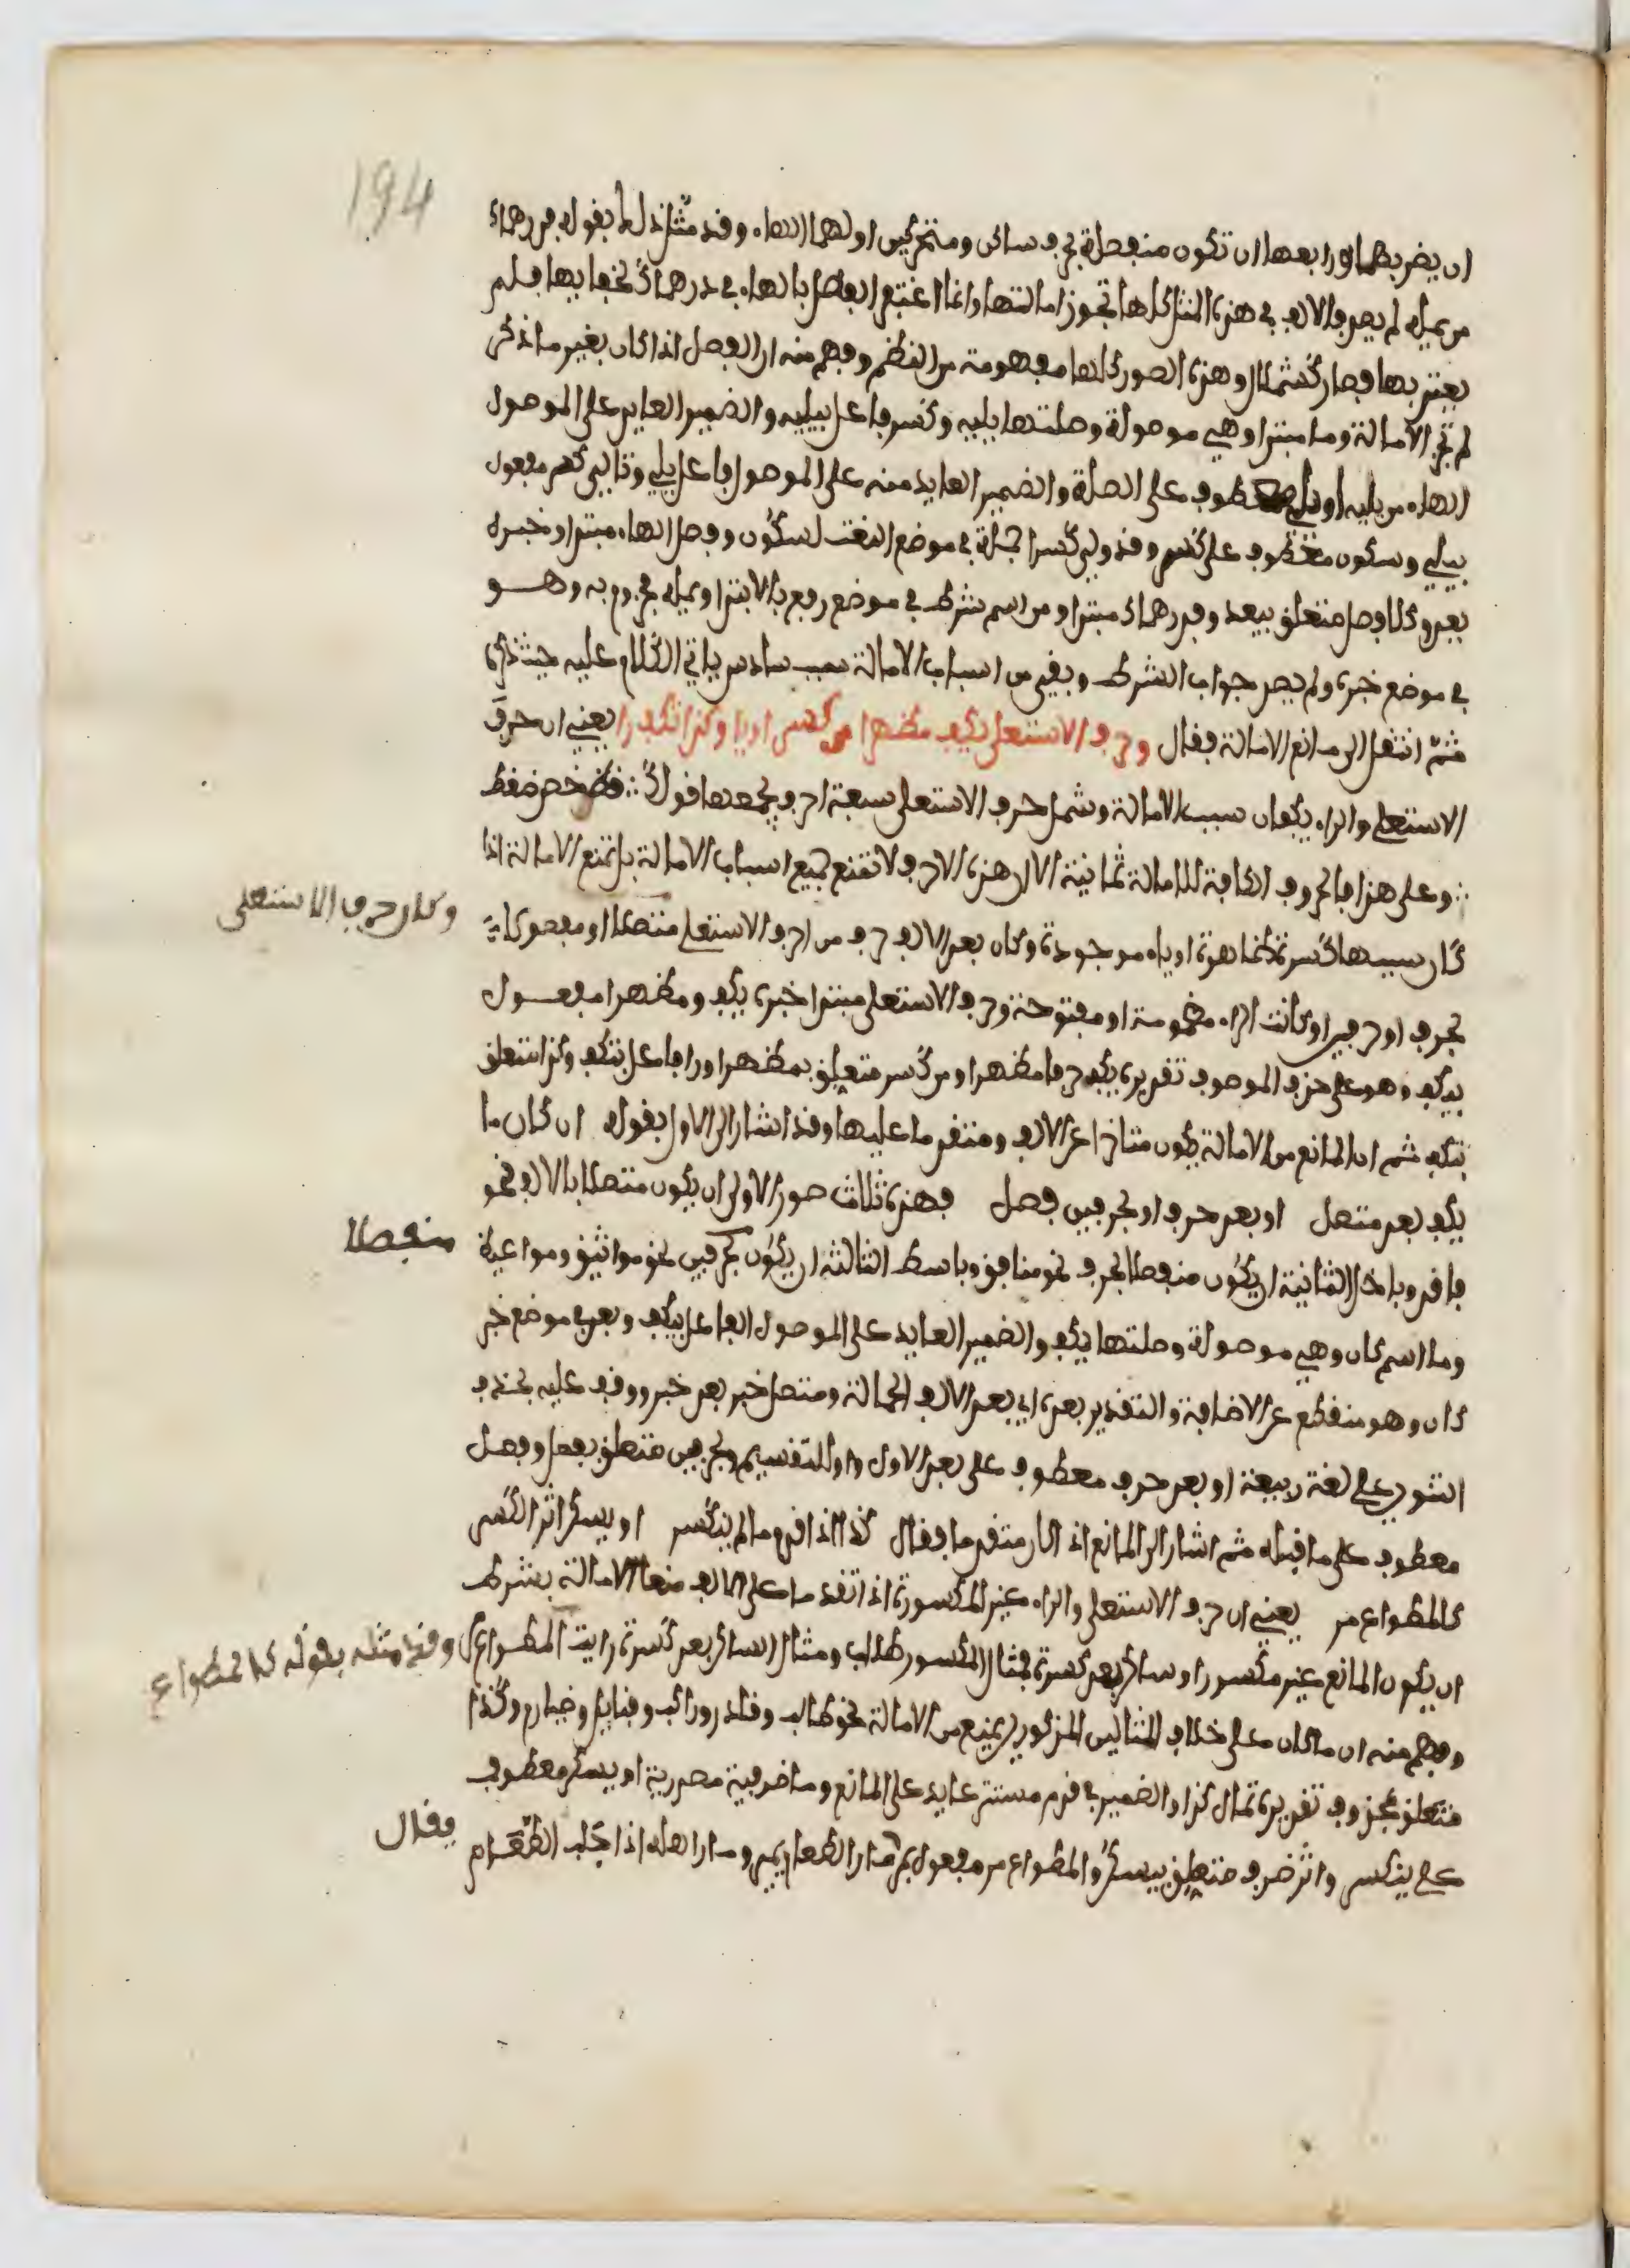 194
ان يضربها ورابعها ان تكون منفصلة بحرف ساكن ومتحركين اولهما الهاء وقد مثل ذلك بقوله فدرهماك
من يمله لم يصد فالالف في هذه المثل كلها تجوز امالتها وانما اغتفر الفصل بالهاء في درهماك لخفايها فلم
يعتد بها فصار كشملال وهذه الصور كلها مفهومة من النظم وفهم منه ان الفصل اذا كان بغير ما ذكر
لم تجز الامالة وما مبتدا وهي موصولة وصلتها يليه وكسر فاعل بيليه والضمير العايد على الموصول
الهاء من يليه او يلي معطوف على الصلة والضمير العايد منه على الموصول فاعل يلي وتالي كسر مفعول
بيلي وسكون معطوف على كسر وقد ولي كسرا جملة في موضع النعت لسكون وفصل الهاء مبتدا وخبره
يعد وكلا وصل متعلق بيعد وفدرهماك مبتدا ومن اسم شرط في موضع رفع بالابتدا ويمله مجزوم به وهو
في موضع خبره ولم يصد جواب الشرط وبقي من اسباب الامالة سبب سادس ياتي الكلام عليه حيث ذكره
ثم انتقل الى مانع الامالة فقال وحرف الاستعلا يكف مظهرا من كسر او يا وكذا تكف را يعني ان حرف
الاستعلى والراء يكفان سبب الامالة وشمل حرف الاستعلى سبعة احرف يجمعها قولك ∴ قظ خص ضغط
∴ وعلى هذا فالحروف الكافة للامالة ثمانية الا ان هذه الاحرف لا تمنع جميع اسباب الامالة بل تمنع الامالة اذا
كان سببها كسرة ظاهرة او ياء موجودة وكان بعد الالف حرف من احرف الاستعلى متصلا او مفصولا
وكان حرف الاستعلى
بحرف او حرفين او كانت الراء مضمومة او مفتوحة وحرف الاستعلى مبتدا خبره يكف ومظهرا مفعول
بيكف وهو على حذف الموصوف تقديره يكف حرفا مظهرا ومن كسر متعلق بمظهرا ورا فاعل بتكف وكذا متعلق
بتكف ثم ان المانع من الامالة يكون متاخرا عن الالف ومتقدما عليها وقد اشار الى الاول بقوله ان كان ما
يكف بعد متصل او بعد حرف او بحرفين فصل فهذه ثلاث صور الاولى ان يكون متصلا بالالف نحو
فاقد وباخل الثانية ان يكون منفصلا بحرف نحو منافق وباسط الثالثة ان يكون بحرفين نحو مواثيق ومواعيظ
منفصلا
وما اسم كان وهي موصولة وصلتها يكف والضمير العايد على الموصول الفاعل بيكف وبعد في موضع خبر
كان وهو منقطع عن الاضافة والتقدير بعده اي بعد الالف الممالة ومتصل خبر بعد خبر ووقف عليه بحذف
التنوين على لغة ربيعة او بعد حرف معطوف على بعد الاول واو للتقسيم وبحرفين متعلق بفصل وفصل
معطوف على ما قبله ثم اشار الى المانع اذا كان متقدما فقال كذا اذا قدم ما لم ينكسر او يسكن اثر الكسر
كالمطواع مر يعني ان حرف الاستعلى والراء غير المكسورة اذا تقدما على الالف منعا الامالة بشرط
ان يكون المانع غير مكسور او ساكن بعد كسرة فمثال المكسور طلاب ومثال الساكن بعد كسرة رايت المطواع
وقد مثله بقوله كالمطواع
وفهم منه ان ما كان على خلاف المثالين المذكورين يمنع من الامالة نحو طالب وقادر وراكب وقبايل وضبارم وكذا
متعلق بمحذوف تقديره تمال كذا والضمير في قدم مستتر عايد على المانع وما ظرفية مصدرية او يسكن معطوف
على ينكسر واثر ظرف متعلق بيسكن والمطواع مر مفعول بمر من مار الطعام يمير ومار اهله اذا جلب الطعام
فقال